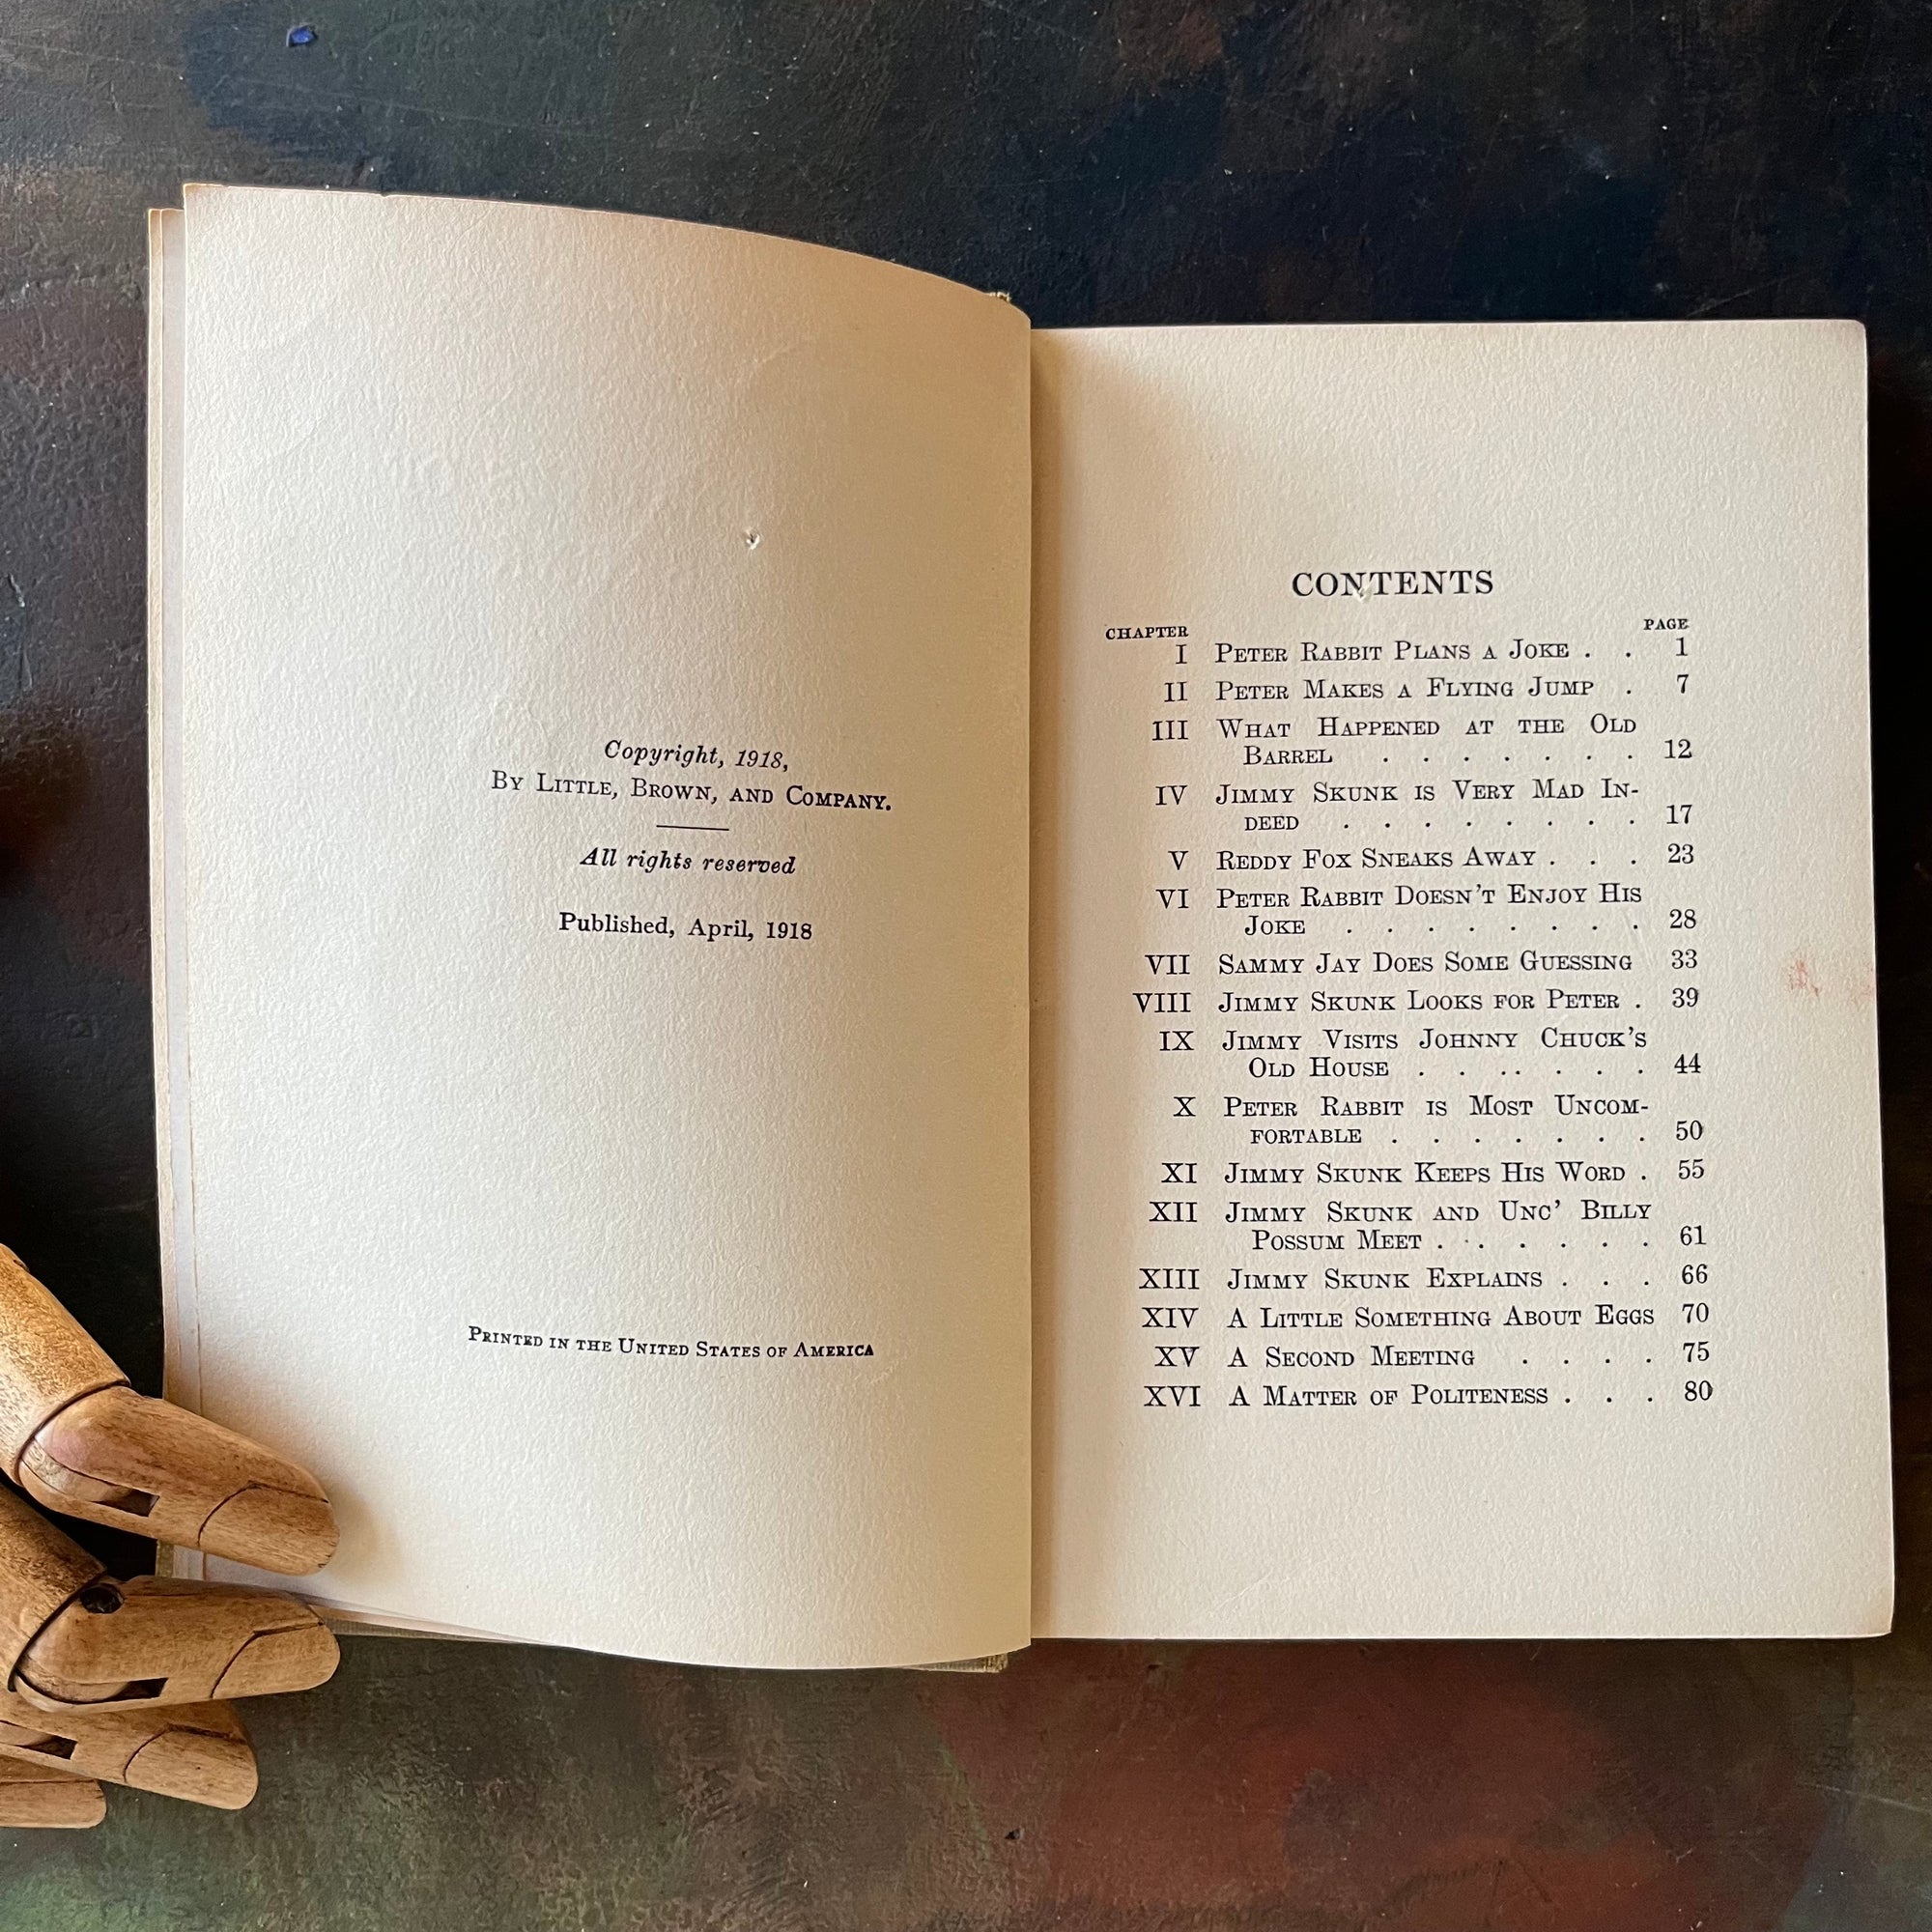 Copyright, 1918,
By Little, Brown, and Company.
All rights reserved
Published, April, 1918
Printed in the United States of America
CONTENTS
CHAPTER PAGE
I Peter Rabbit Plans a Joke . . 1
II Peter Makes a Flying Jump . 7
III What Happened at the Old
Barrel . . . . . . . 12
IV Jimmy Skunk is Very Mad In-
deed . . . . . . . . 17
V Reddy Fox Sneaks Away . . . 23
VI Peter Rabbit Doesn't Enjoy His
Joke . . . . . . . . 28
VII Sammy Jay Does Some Guessing 33
VIII Jimmy Skunk Looks for Peter . 39
IX Jimmy Visits Johnny Chuck's
Old House . . . . . . . 44
X Peter Rabbit is Most Uncom-
fortable . . . . . . . 50
XI Jimmy Skunk Keeps His Word . 55
XII Jimmy Skunk and Unc' Billy
Possum Meet . . . . . . 61
XIII Jimmy Skunk Explains . . . 66
XIV A Little Something About Eggs 70
XV A Second Meeting . . . . 75
XVI A Matter of Politeness . . . 80